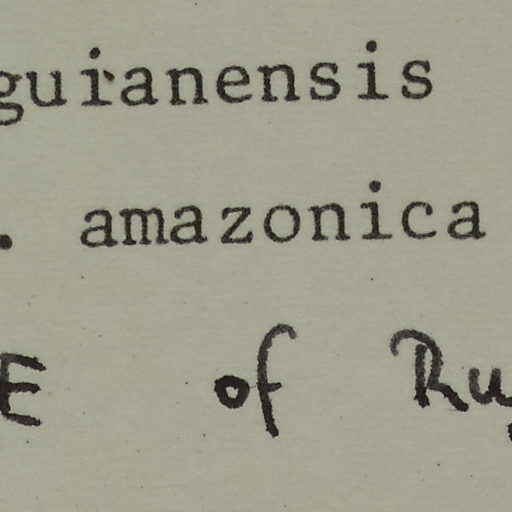 guianensis
. amazonica
E of Ru